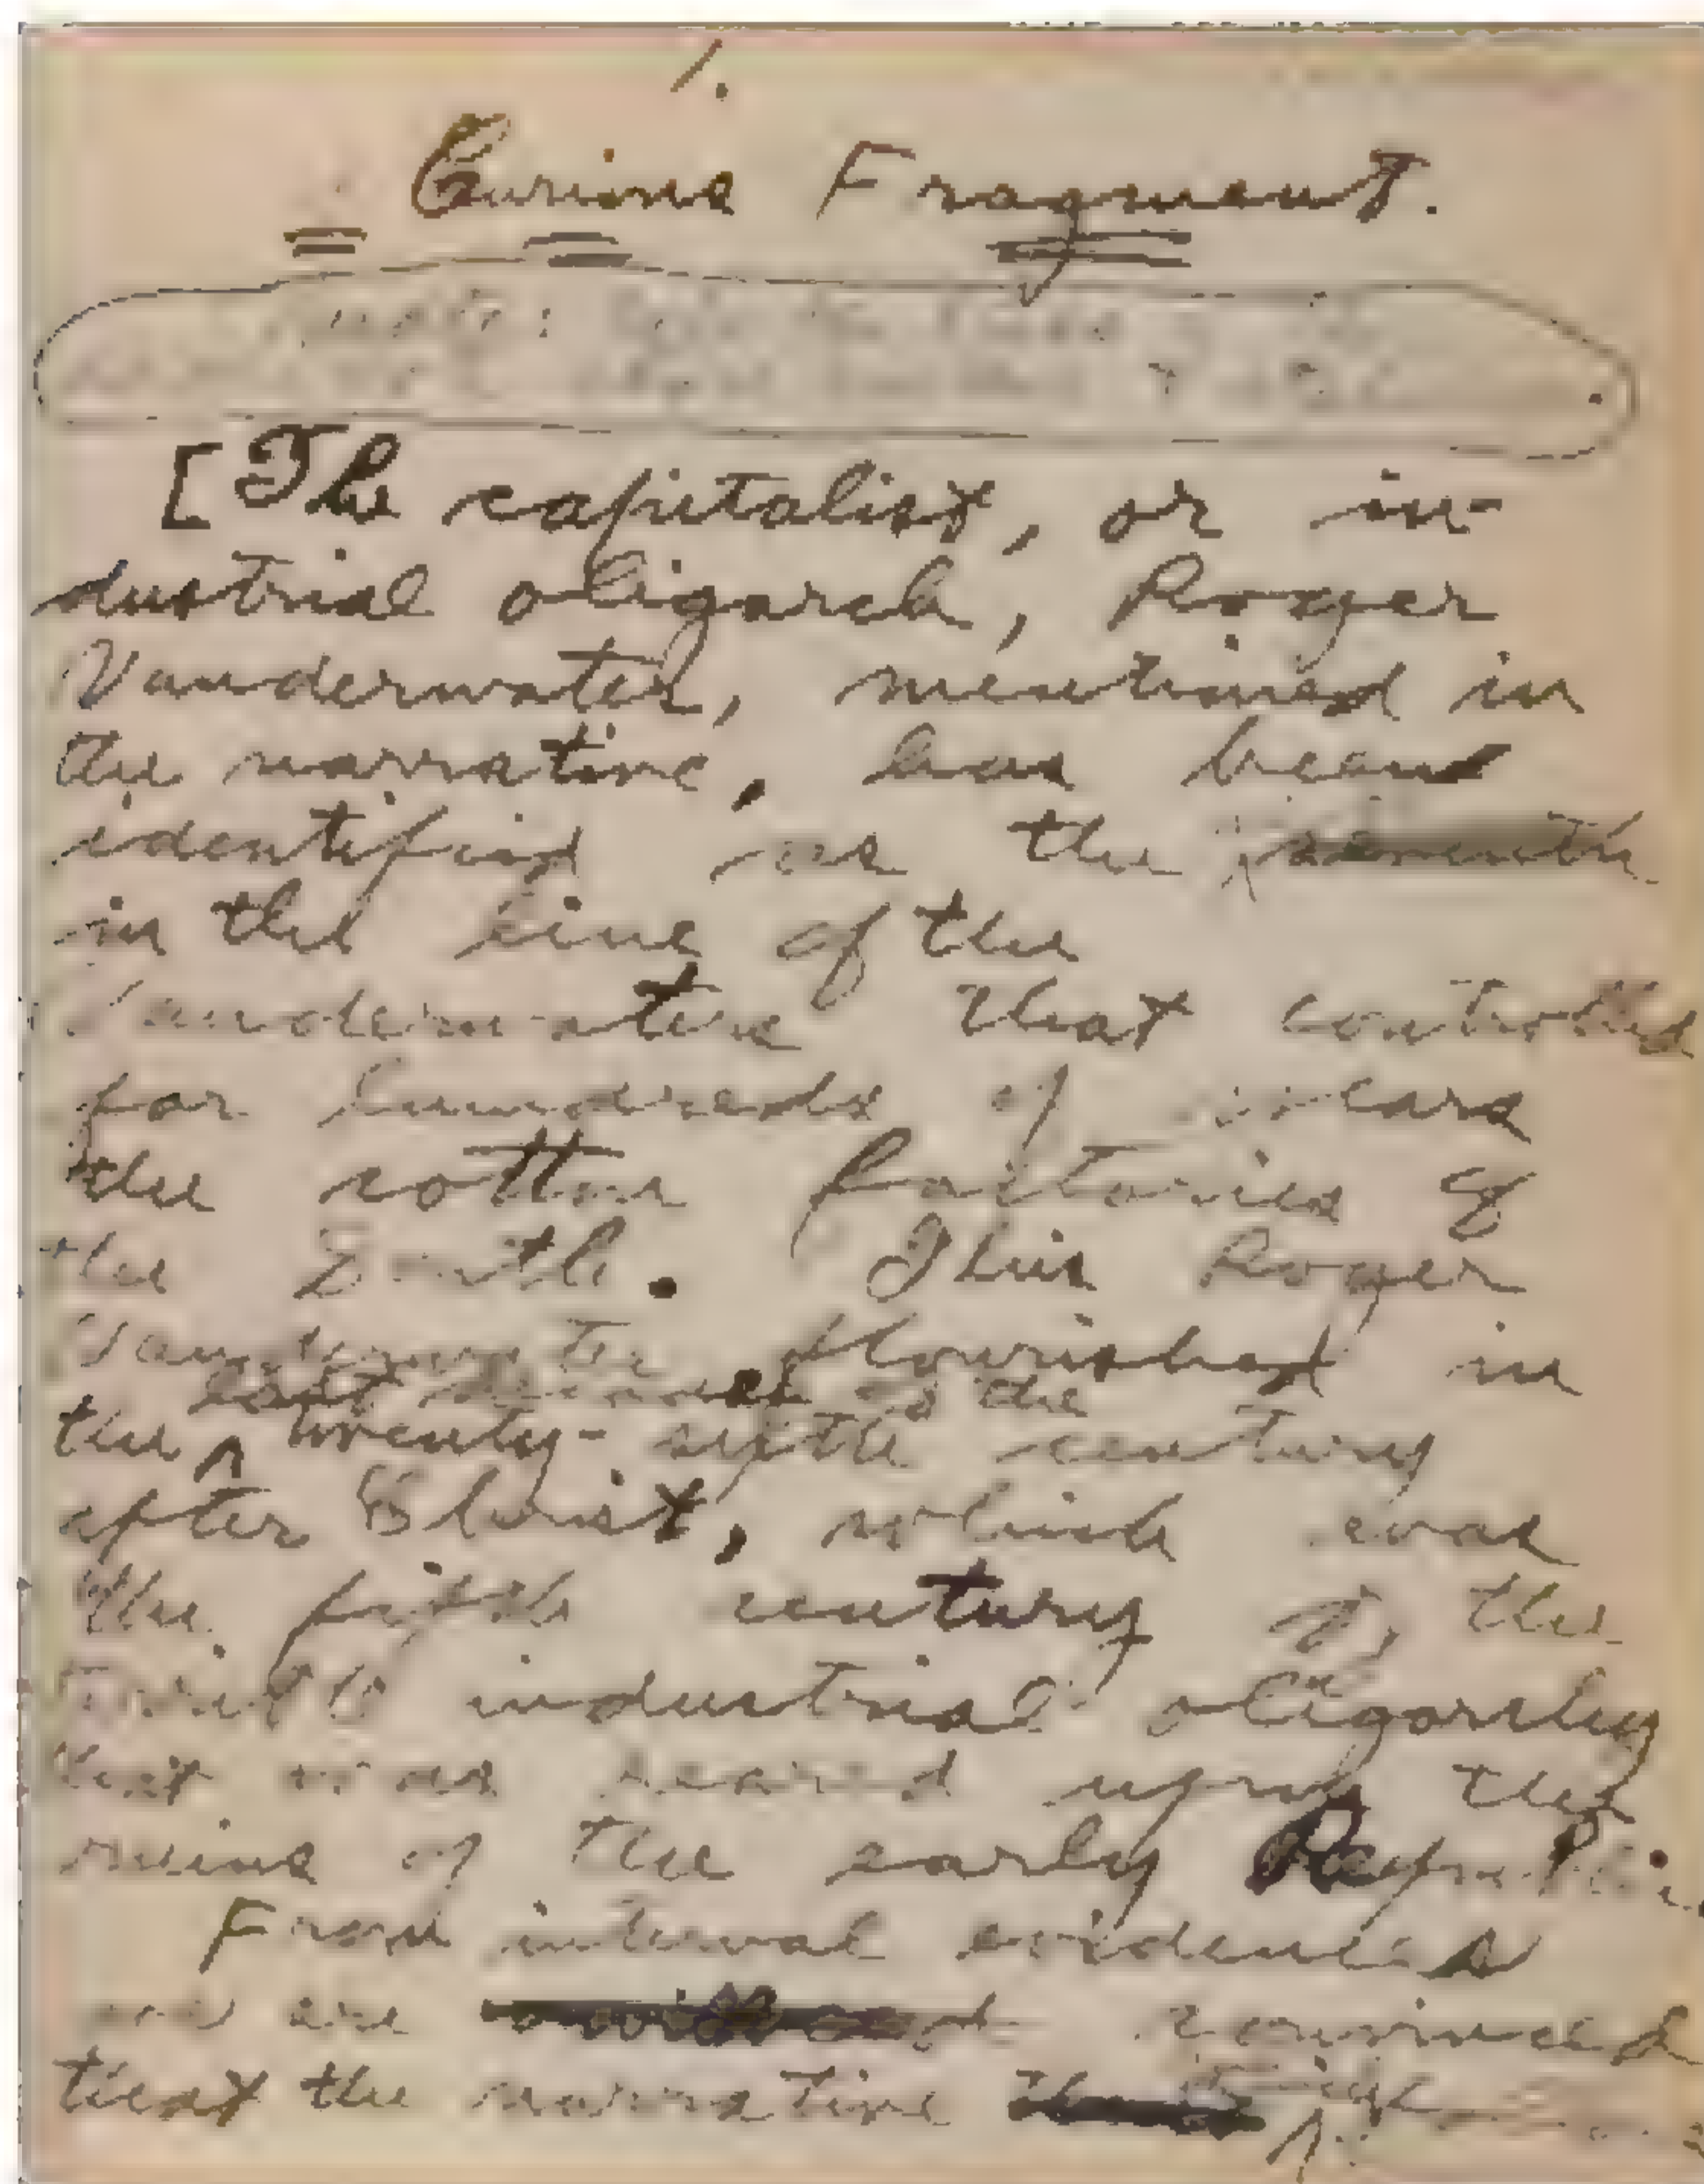 1.
Curious Fragment.
[The capitalist, or in-
dustrial oligarch, Roger
Vanderwater, mentioned in
the narrative, has been
identified as the
in the line of the
Vanderwaters that controlled
for hundreds of years
the cotton factories of
the South. This Roger
Vanderwater flourished in
last decades of the
the ^ twenty-sixth century
after Christ, which was
the fifth century of the
industrial oligarchy
that was reared upon the
ruins of the early Republic.
From internal evidences
we are convinced
that the narrative